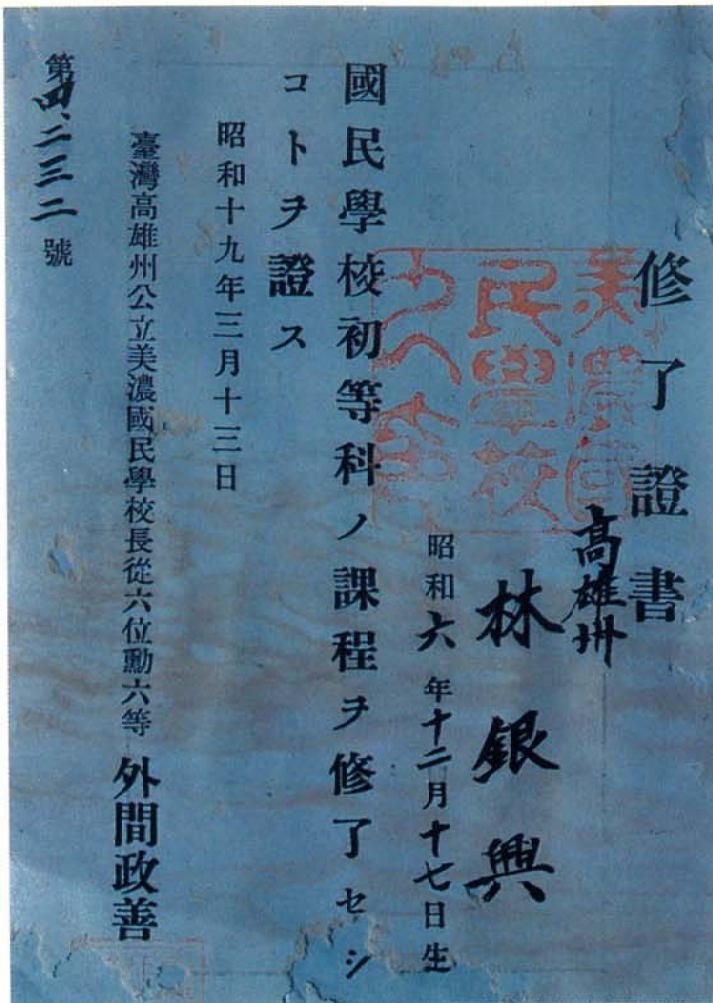 修了證書
高雄州
林銀興
昭和六年十二月十七日生
國民學校初等科ノ課程ヲ修了セシ
コトヲ證ス
昭和十九年三月十三日
臺灣高雄州公立美濃國民學校長從六位勳六等 外間政善
第四、二三二號
美濃國
民學校